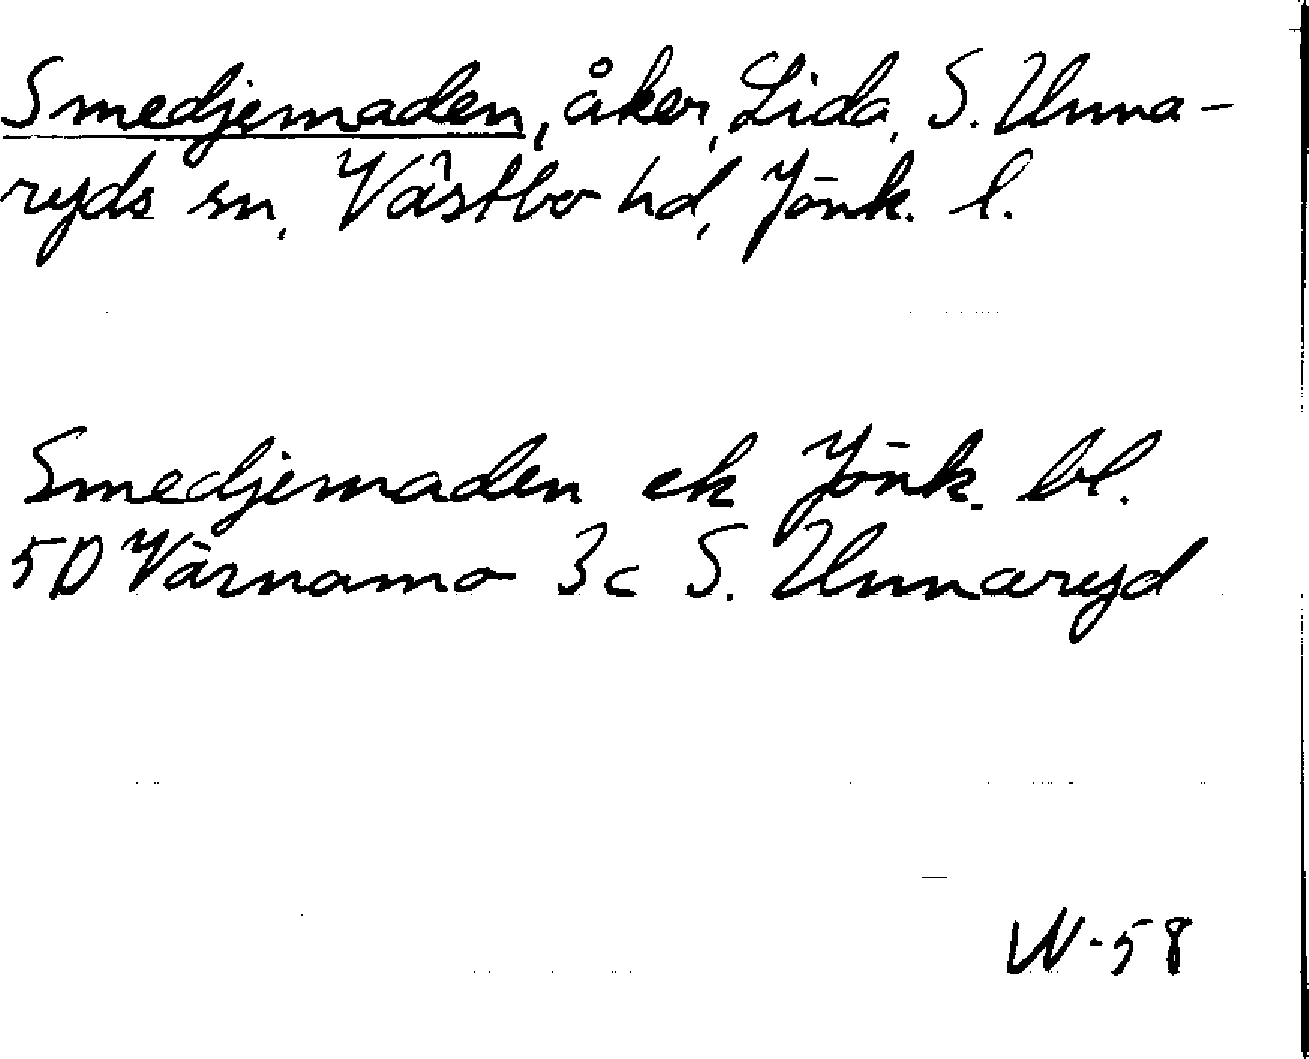 Smedjemaden, åker, Lida, S. Unna-
ryds sn, Västbo hd, Jönk. l.
Smedjemaden ek Jönk. bl.
5D Värnamo 3c S. Unnaryd
W-58